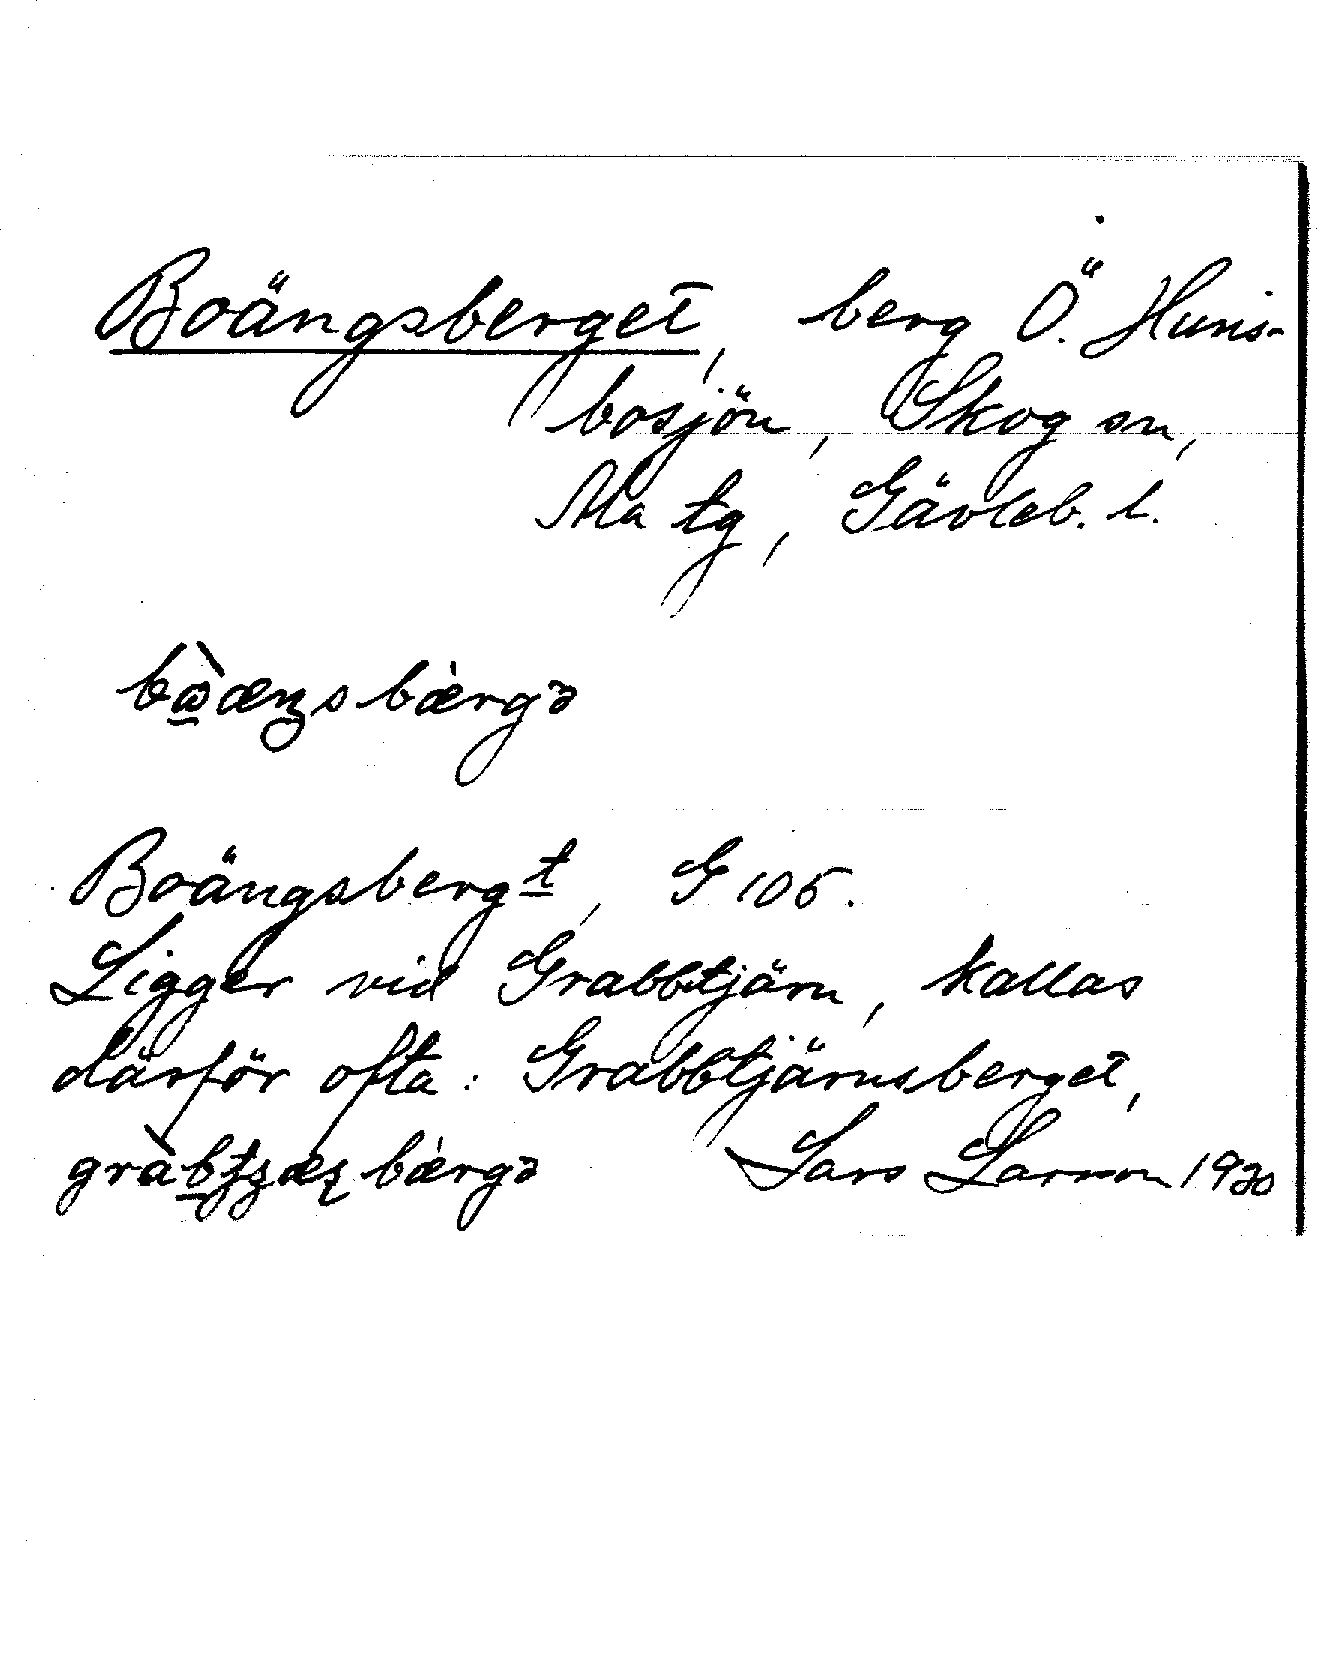 Boängsberget, berg Ö. Huns-
bosjön, Skog sn,
Ma tg, Gävleb. l.
bɷ̀æŋs bærgə
Boängsbergt, G 105.
Ligger vid Grabbtjärn, kallas
därför ofta: Grabbtjärnsberget,
bærgə Lars Larson 1930